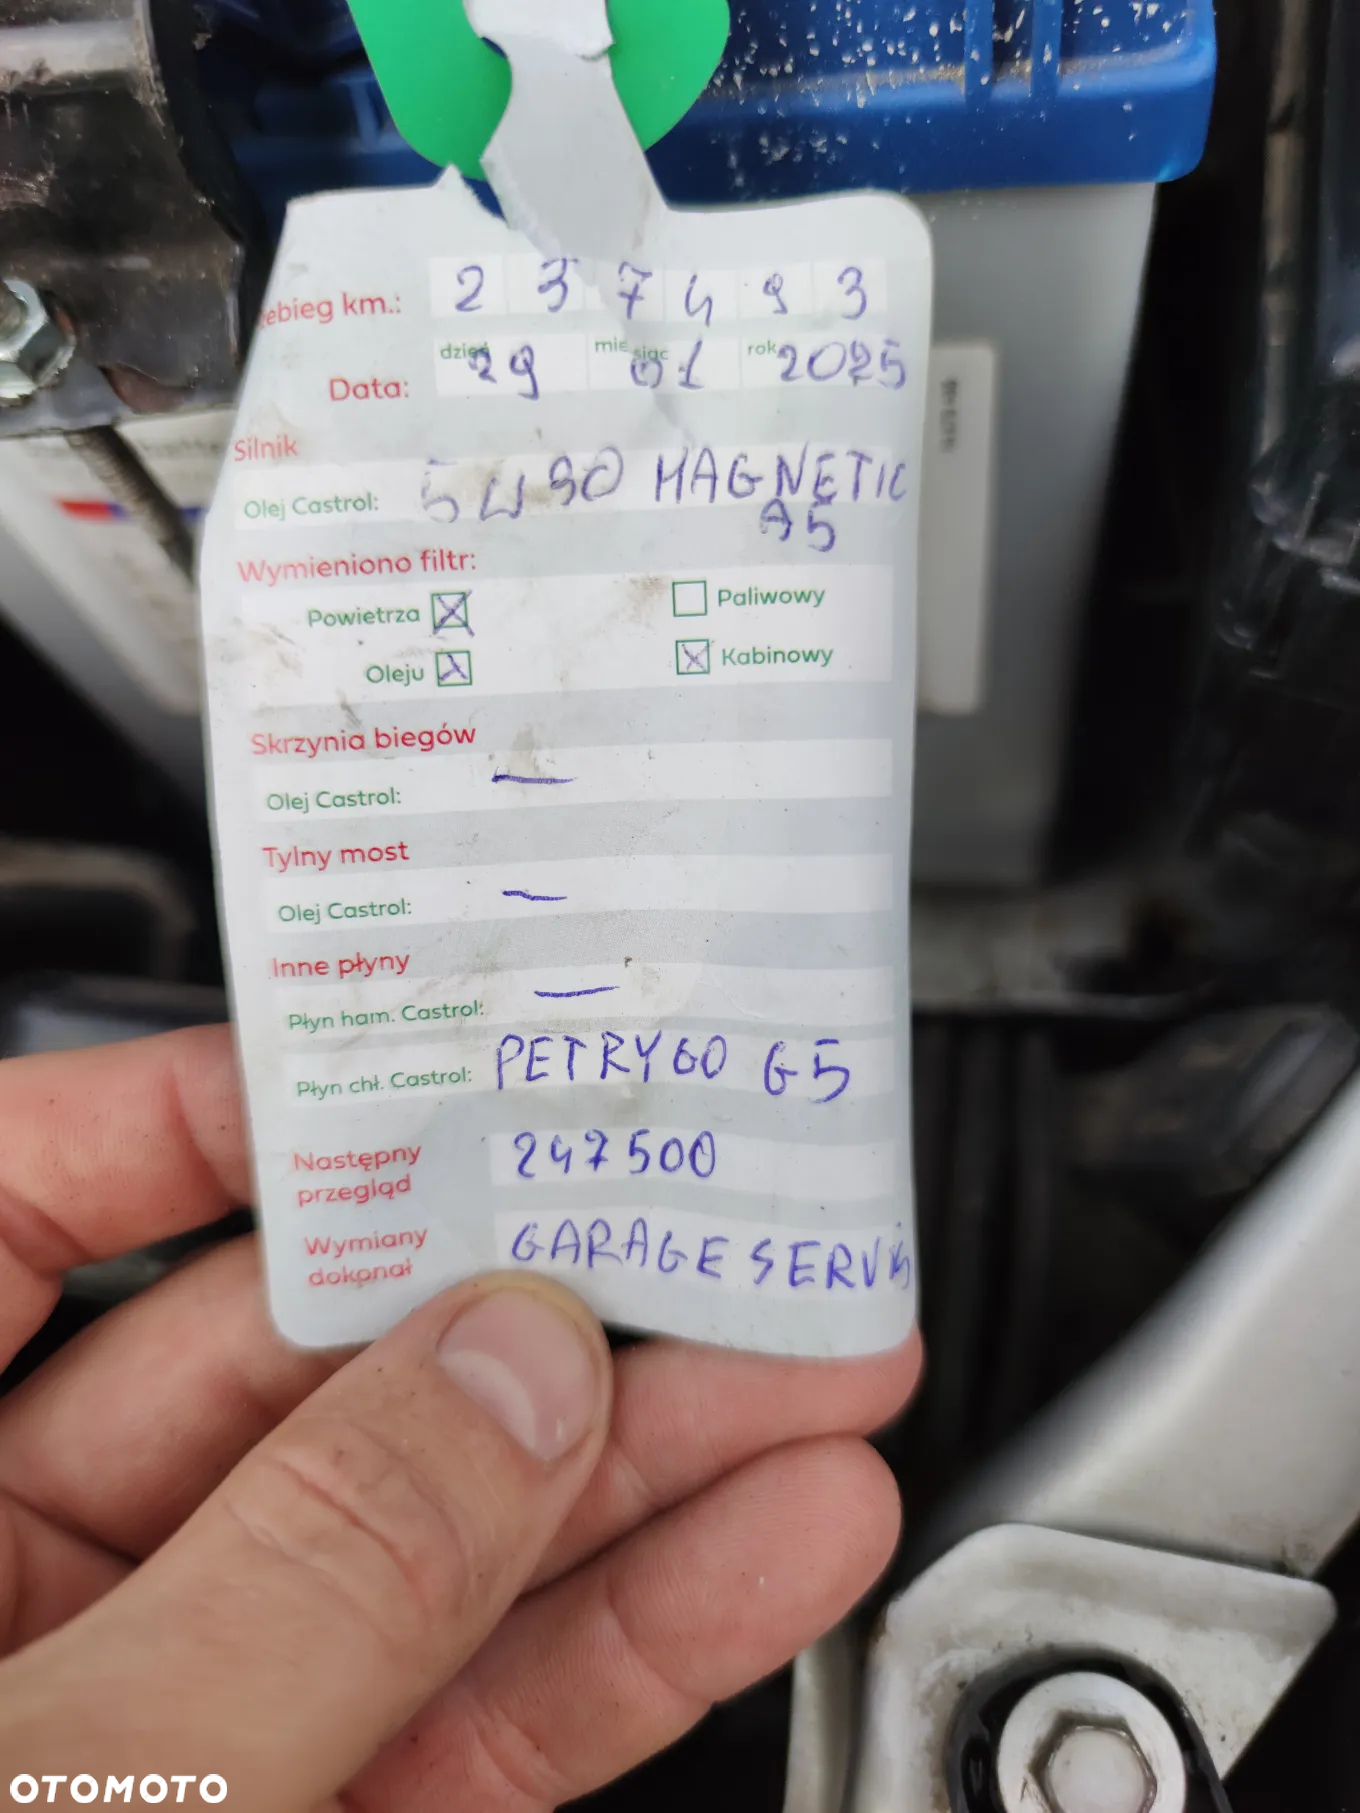 zebieg km.: 2 3 7 4 9 3
dzień miesiąc rok
Data: 29 01 2025
Silnik
Olej Castrol: 5W30 MAGNETIC
A5
Wymieniono filtr:
Powietrza Paliwowy
Oleju Kabinowy
Skrzynia biegów
Olej Castrol: —
Tylny most
Olej Castrol: —
Inne płyny
Płyn ham. Castrol: —
Płyn chł. Castrol: PETRYGO G5
Następny przegląd 247500
Wymiany dokonał GARAGE SERVIS
OTOMOTO